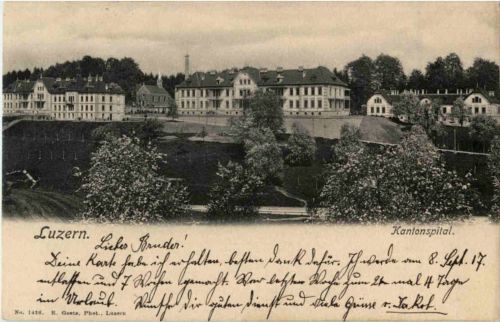 Luzern.
Kantonspital.
Liebes Bruder!
Deine Karte habe ich erhalten, besten Dank dafür. Ich werde am 8. Sept. 17.
entlassen und 7 Wochen gemacht. War letzte Woche zum 2t mal 4 Tage
im Urlaub. Wünsche Dir guten Dienst und viele Grüsse v. Jakob.
No. 1426. E. Goetz, Phot., Luzern